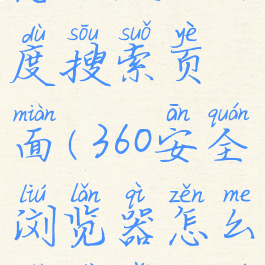 dù sōu suǒ yè
度搜索页
miàn ān quán
面(360安全
liú lǎn qì zěn me
浏览器怎么